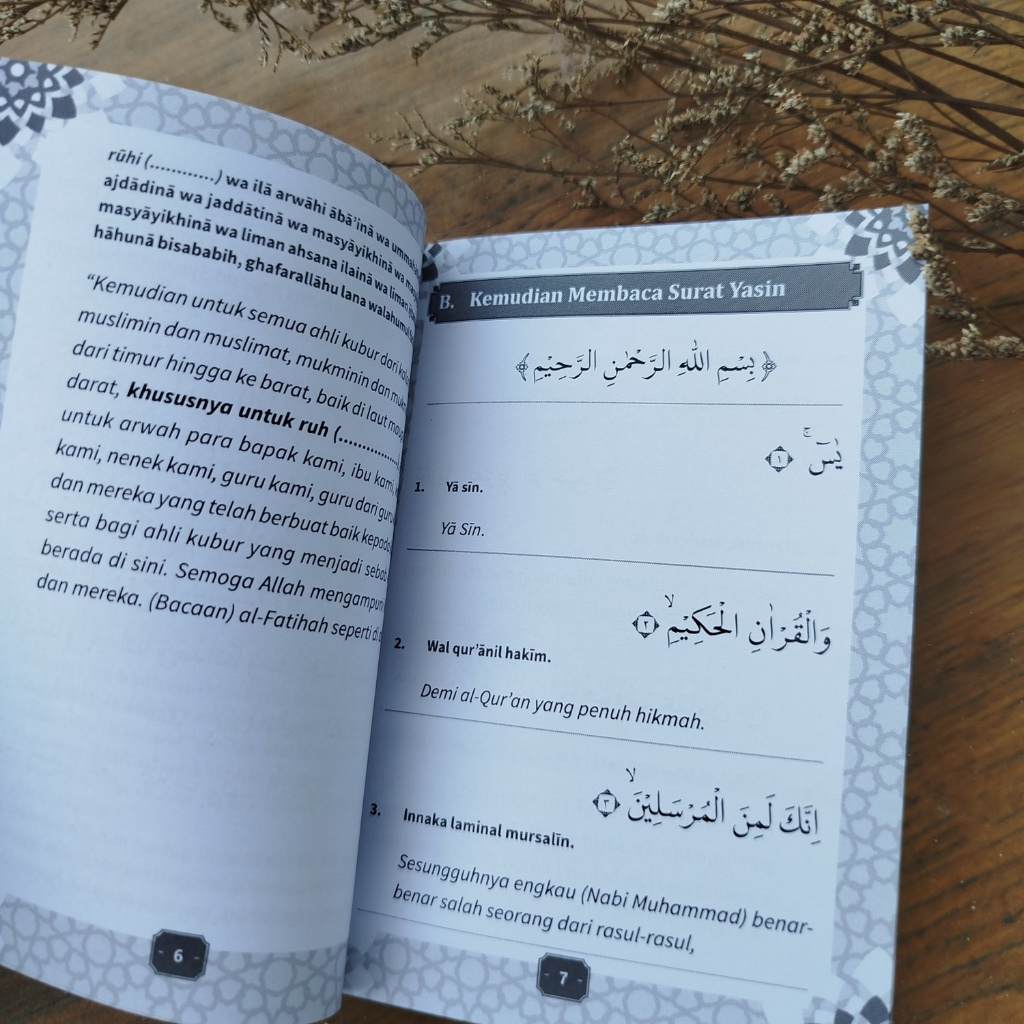 rūhi (............) wa ilā arwāhi ābā'inā wa
ajdādinā wa jaddātinā wa masyāyikhinā wa
masyāyikhinā wa liman ahsana ilainā wa liman
hāhunā bisababih, ghafarallāhu lana
"Kemudian untuk semua ahli kubur dari
muslimin dan muslimat, mukminin dan
dari timur hingga ke barat, baik di laut
darat, khususnya untuk ruh (..............
untuk arwah para bapak kami, ibu kami,
kami, nenek kami, guru kami, guru dari
dan mereka yang telah berbuat baik
serta bagi ahli kubur yang menjadi
berada di sini. Semoga Allah
dan mereka. (Bacaan) al-Fatihah seperti
6
B. Kemudian Membaca Surat Yasin
﴿ بِسْمِ اللهِ الرَّحْمٰنِ الرَّحِيْمِ ﴾
يٰسۤ ۚ ١
1. Yā sīn.
Yā Sīn.
وَالْقُرْاٰنِ الْحَكِيْمِۙ ٢
2. Wal qur'ānil hakīm.
Demi al-Qur'an yang penuh hikmah.
اِنَّكَ لَمِنَ الْمُرْسَلِيْنَۙ ٣
3. Innaka laminal mursalīn.
Sesungguhnya engkau (Nabi Muhammad) benar-
benar salah seorang dari rasul-rasul,
7